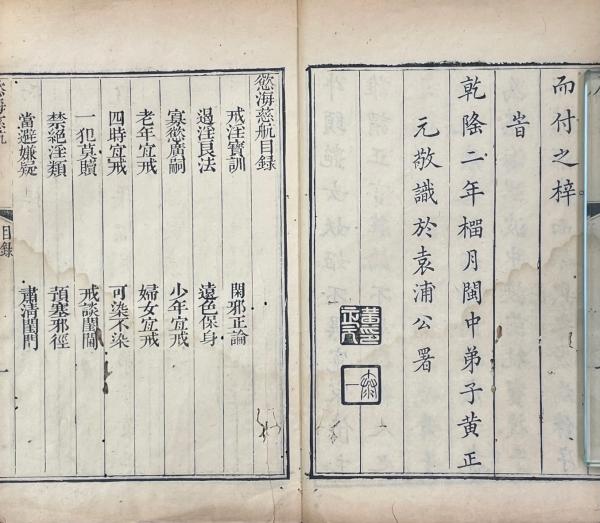 而付之梓
旹
乾隆二年橊月閩中弟子黄正
元敬識於袁浦公署
慾海慈航目録
戒淫寶訓 閑邪正論
遏淫良法 遠色保身
寡慾廣嗣 少年宜戒
老年宜戒 婦女宜戒
四時宜戒 可染不染
一犯莫贖 戒談閨閫
禁絶淫類 預塞邪徑
當避嫌疑 肅清閨門
目錄